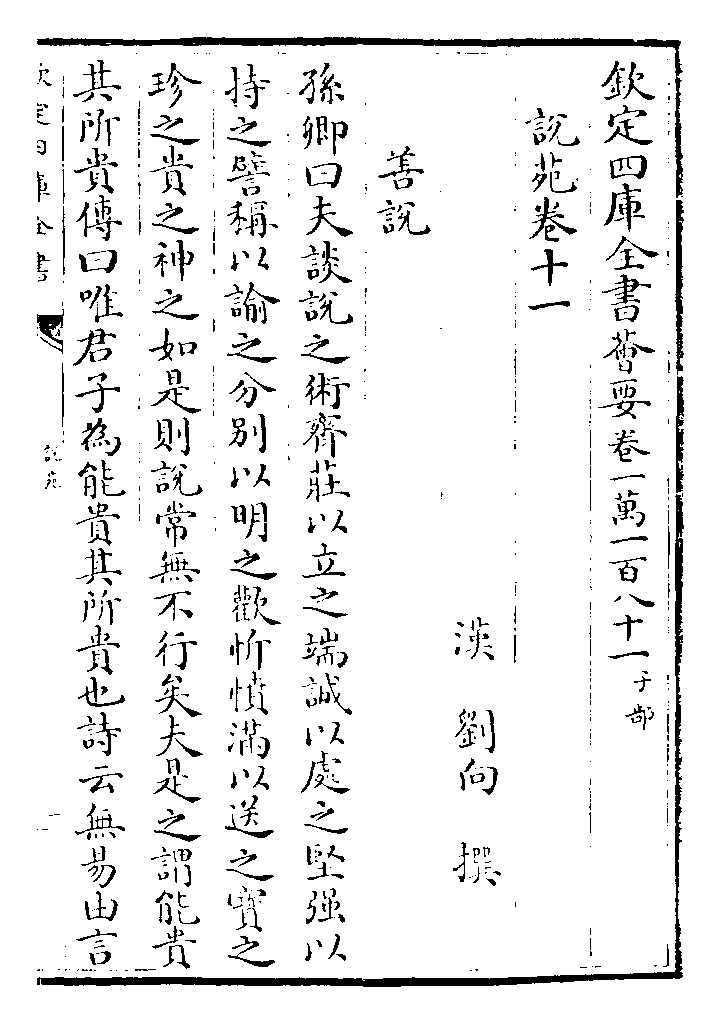 欽定四庫全書薈要卷一萬一百八十一子部
說苑卷十一
漢劉向撰
善說
孫卿曰夫談說之術齊莊以立之端誠以處之堅强以
持之譬稱以諭之分別以明之歡忻憤滿以送之寳之
珍之貴之神之如是則說常無不行矣夫是之謂能貴
其所貴傳曰唯君子為能貴其所貴也詩云無易由言
欽定四庫全書
說苑
一